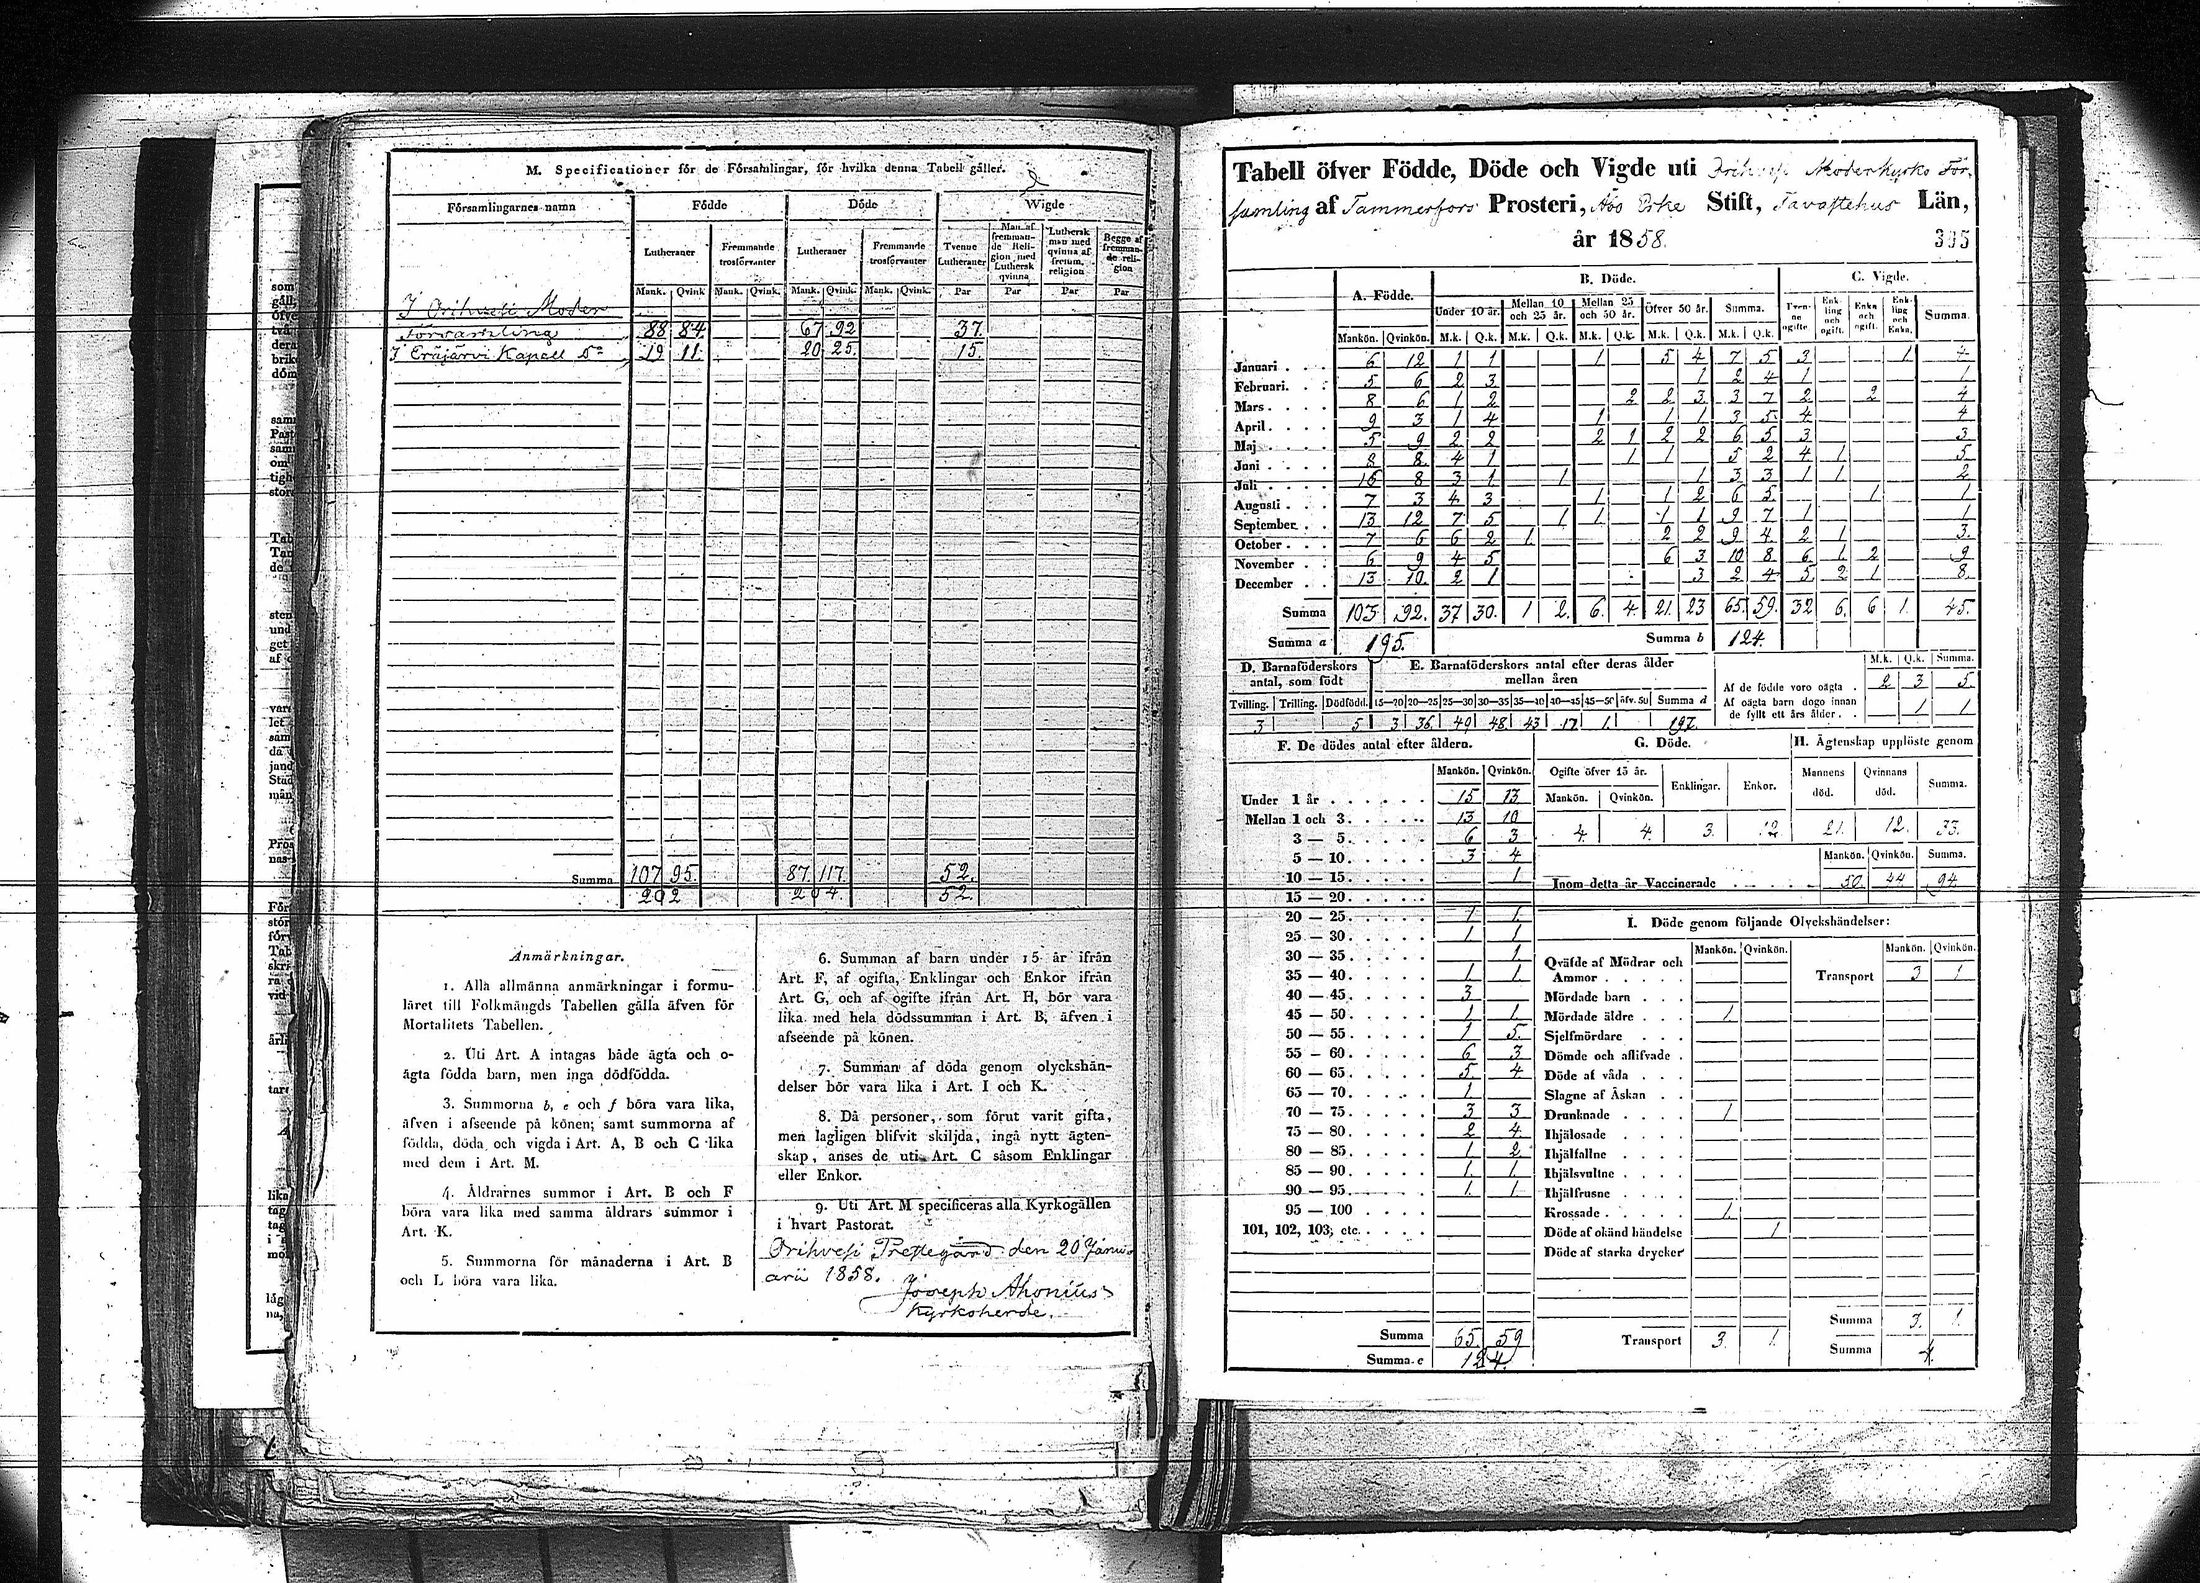 M. Specificationer för de Församlingar, för hvilka denna Tabell gäller.
Församlingarnes namn
Födde
Döde
Wigde
Lutheraner
Fremmande trosförvanter
Lutheraner
Fremmande trosförvanter
Tvenne Lutheraner
Man af fremmande Religion med Luthersk qvinna
Luthersk man med qvinna af fremm. religion
Begge af fremmande religion
Mank. Qvink Mank. Qvink. Mank. Qvink. Mank. Qvink. Par Par Par Par
I Orihvesi Moder
Församling 88 84 67 92 37
I Eräjärvi Kapell Do 19 11 20 25 15
Summa 107 95 87 117 52
202 204 52
Anmärkningar.
1. Alla allmänna anmärkningar i formu-
läret till Folkmängds Tabellen gälla äfven för
Mortalitets Tabellen.
2. Uti Art. A intagas både ägta och o-
ägta födda barn, men inga dödfödda.
3. Summorna b, e och f böra vara lika,
äfven i afseende på könen; samt summorna af
födda, döda och vigda i Art. A, B och C lika
med dem i Art. M.
4. Åldrarnes summor i Art. B och F
böra vara lika med samma åldrars summor i
Art. K.
5. Summorna för månaderna i Art. B
och L böra vara lika.
6. Summan af barn under 15 år ifrån
Art. F, af ogifta, Enklingar och Enkor ifrån
Art. G, och af ogifte ifrån Art. H, bör vara
lika med hela dödssumman i Art. B, äfven i
afseende på könen.
7. Summan af döda genom olyckshän-
delser bör vara lika i Art. I och K.
8. Då personer, som förut varit gifta,
men lagligen blifvit skiljda, ingå nytt ägten-
skap, anses de uti Art. C såsom Enklingar
eller Enkor.
9. Uti Art. M specificeras alla Kyrkogällen
i hvart Pastorat.
Orihvesi Prestegård den 20 Janu-
arii 1858.
Joseph Ahonius
Kyrkoherde.
Tabell öfver Födde, Döde och Vigde uti Orihvesi Moderkyrko För-
samling af Tammerfors Prosteri, Åbo Erke Stift, Tavastehus Län,
år 1858.
395
A. Födde.
B. Döde.
C. Vigde.
Under 10 år. Mellan 10 och 25 år. Mellan 25 och 50 år. Öfver 50 år. Summa.
Tvenne ogifte Enkling och ogift. Enka och ogift. Enkling och Enka. Summa
Mankön. Qvinkön. M.k. Q.k. M.k. Q.k. M.k. Q.k. M.k. Q.k. M.k. Q.k.
Januari 6 12 1 1 1 5 4 7 5 3 1 4
Februari. 5 6 2 3 1 2 4 1 1
Mars 8 6 1 2 2 2 3 3 7 2 2 4
April 9 3 1 4 1 1 1 3 5 4 4
Maj 5 9 2 2 2 1 2 2 6 5 3 3
Juni 8 8 4 1 1 1 5 2 4 1 5
Juli 16 8 3 1 1 1 3 3 1 1 2
Augusti 7 3 4 3 1 1 2 6 5 1 1
September 13 12 7 5 1 1 1 1 9 7 1 1
October 7 6 6 2 1 2 2 9 4 2 1 3.
November 6 9 4 5 6 3 10 8 6 1 2 9
December 13 10 2 1 3 2 4 5 2 1 8.
Summa 103 92. 37 30. 1 2. 6. 4. 21. 23 65. 59. 32 6. 6 1. 45.
Summa a 195. Summa b 124.
D. Barnaföderskors antal, som födt
E. Barnaföderskors antal efter deras ålder mellan åren
Tvilling. Trilling. Dödfödd. 15—20 20—25 25—30 30—35 35—40 40—45 45—50 öfv. 50 Summa d
3 5 3 36 49 48 43 17 1. 197.
M.k. Q.k. Summa.
Af de födde voro oägta . 2 3 5.
Af oägta barn dogo innan
de fyllt ett års ålder . . 1 1
F. De dödes antal efter åldern.
Mankön. Qvinkön.
Under 1 år 15 13
Mellan 1 och 3. 13 10
3 — 5. 6 3
5 — 10. 3 4
10 — 15. 1
15 — 20.
20 — 25. 1 1
25 — 30. 1 1
30 — 35. 1
35 — 40. 1 1
40 — 45. 3
45 — 50. 1 1
50 — 55. 1 5.
55 — 60. 6 3
60 — 65. 5 4
65 — 70. 1
70 — 75. 3 3
75 — 80. 2 4.
80 — 85. 1 2
85 — 90. 1. 1.
90 — 95. 1. 1
95 — 100
101, 102, 103, etc.
Summa 65. 59
Summa e 124.
G. Döde.
Ogifte öfver 15 år. Enklingar. Enkor.
Mankön. Qvinkön.
4. 4. 3. 12.
H. Ägtenskap upplöste genom
Mannens död. Qvinnans död. Summa.
21. 12. 33.
Mankön. Qvinkön. Summa.
Inom detta år Vaccinerade 50. 44 94.
I. Döde genom följande Olyckshändelser:
Mankön. Qvinkön. Mankön. Qvinkön.
Qväfde af Mödrar och
Ammor Transport 3 1
Mördade barn
Mördade äldre 1.
Sjelfmördare
Dömde och aflifvade
Döde af våda
Slagne af Åskan
Drunknade 1.
Ihjälosade
Ihjälfallne
Ihjälsvultne
Ihjälfrusne
Krossade 1.
Döde af okänd händelse 1
Döde af starka drycker
Summa 3. 1.
Transport 3. 1. Summa 4.